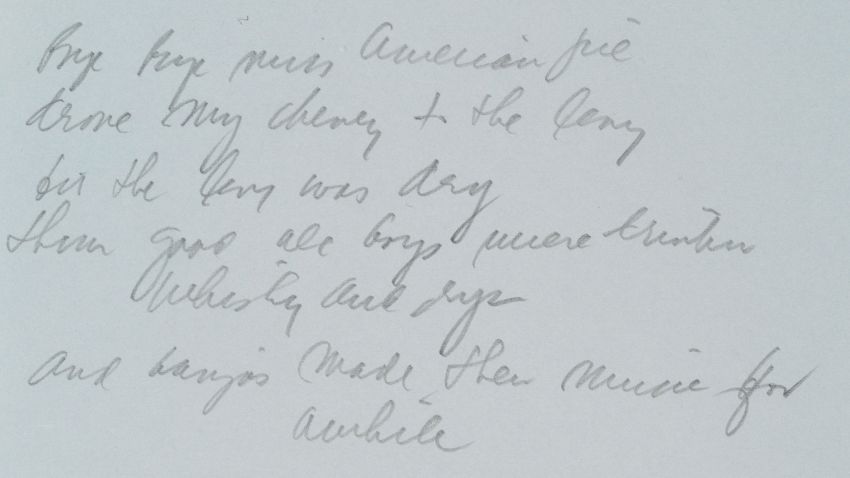 Bye bye miss American pie
drove my chevey to the levy
but the levy was dry
them good ole boys were drinkin
whisky and rye
and banjos made then music for
awhile